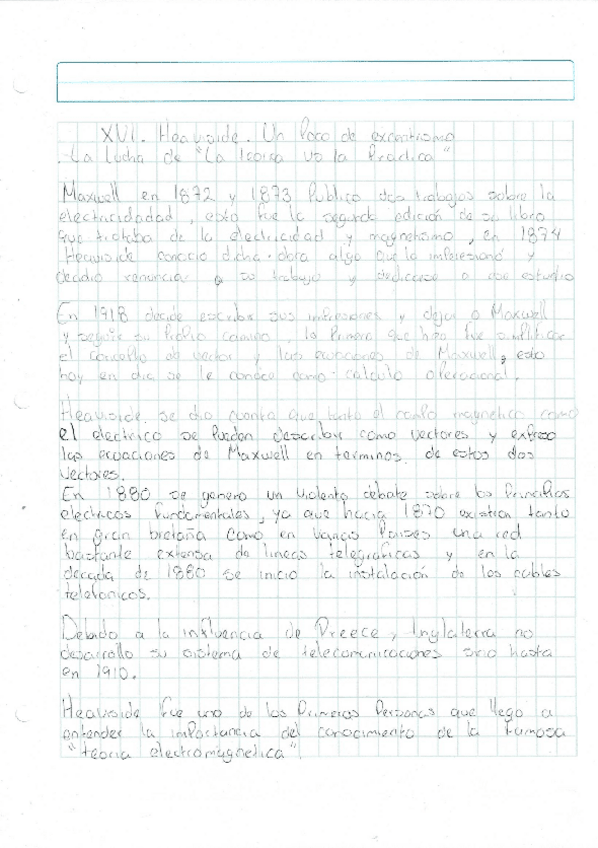 XVI. Heaviside. Un Poco de excentrismo
La Lucha de "La Teoria vs la Práctica"
Maxwell en 1872 y 1873 Publico dos trabajos sobre la
electricidadad, esto fue la segunda edición de su libro
que trataba de la electricidad y magnetismo, en 1874
Heaviside conocio dicha obra algo que la impresionó y
decidio renunciar a su trabajo y dedicarse a ese estudio
En 1918 decide escribir sus impresiones y dejar a Maxwell
y seguir su Propio camino, lo Primero que hizo fue simplificar
el concepto de vector y las ecuaciones de Maxwell, esto
hoy en dia se le conoce como calculo operacional.
Heaviside se dio cuenta que tanto el campo magnetico como
el electrico se Pueden describir como vectores y expreso
las ecuaciones de Maxwell en terminos de estos dos
vectores.
En 1880 se genero un violento debate sobre los Principios
electricos fundamentales, ya que hacia 1870 existian tanto
en gran bretaña como en varios Paises una red
bastante extensa de lineas telegraficas y en la
decada de 1880 se inicio la instalación de los cables
telefonicos.
Debido a la influencia de Preece, Inglaterra no
desarrollo su sistema de telecomunicaciones sino hasta
en 1910.
Heaviside fue uno de los Primeros Personas que llego a
entender la importancia del conocimiento de la Famosa
"teoria electromagnetica".